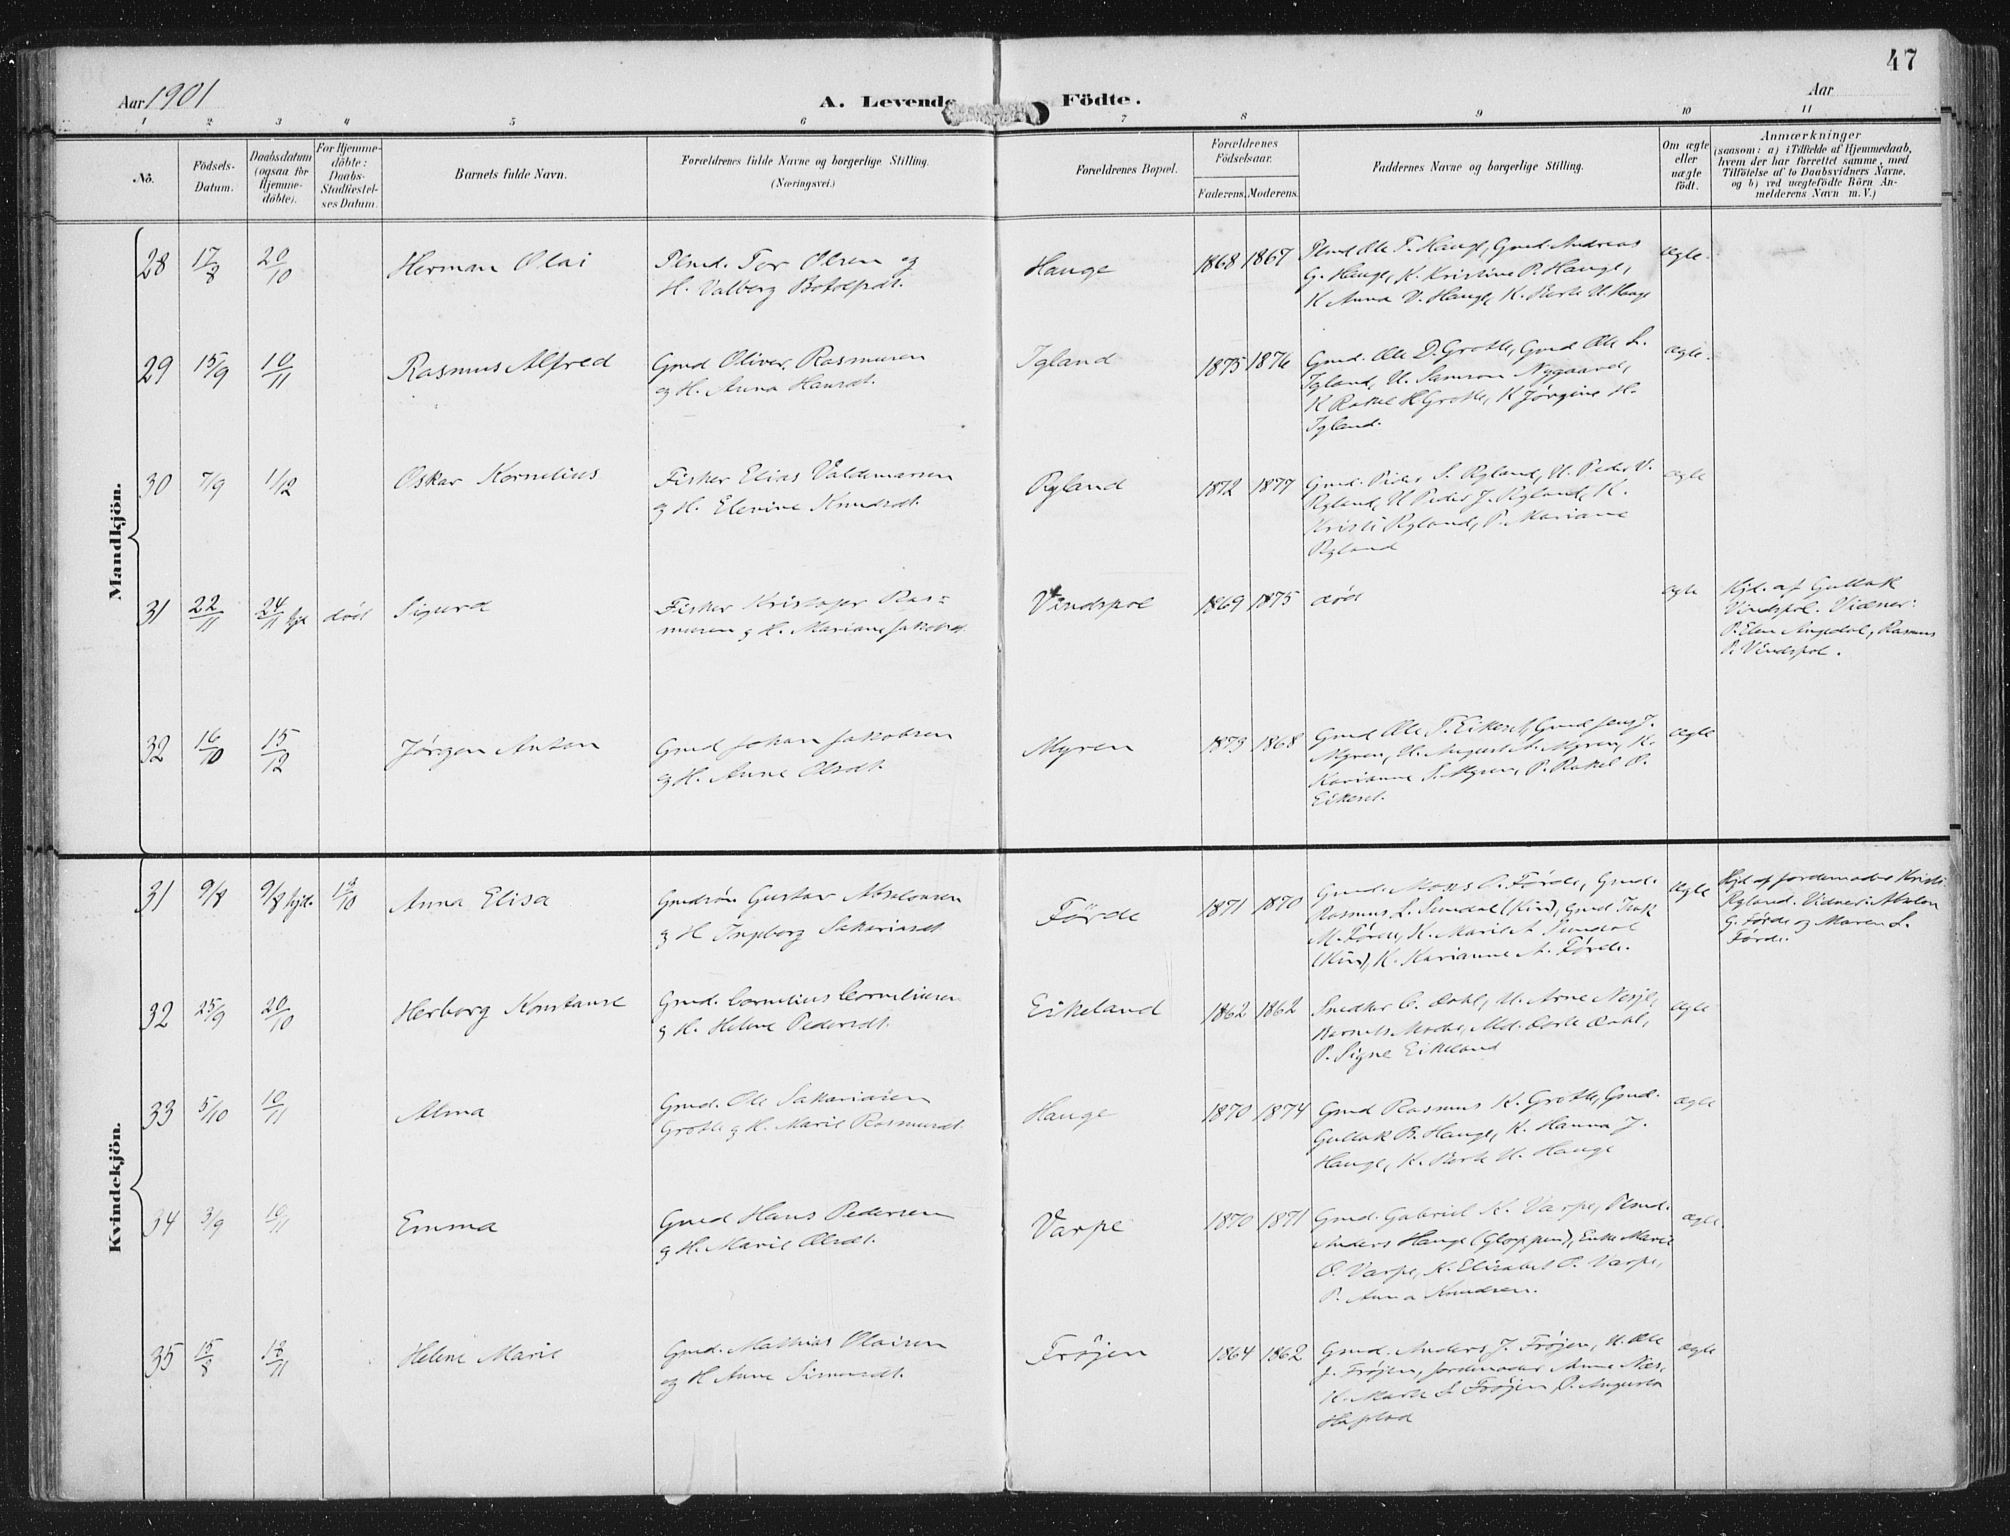 47
Aar 1901
A. Levende Födte.
Aar
1 2 3 4 5 6 7 8 9 10 11
No.
Födsels-
Datum.
Daabsdatum
(ogsaa for
Hjemme-
döbte).
For Hjemme-
döbte:
Daabs-
Stadfæstel-
ses Datum.
Barnets fulde Navn.
Forældrenes fulde Navne og borgerlige Stilling.
(Næringsvei.)
Forældrenes Bopæl.
Forældrenes
Födselsaar.
Faderens. Moderens.
Faddernes Navne og borgerlige Stilling.
Om ægte
eller
uægte
födt.
Anmærkninger
(saasom: a) i Tilfælde af Hjemmedaab,
hvem der har forrettet samme, med
Tilföielse af to Daabsvidners Navne,
og b) ved uægtefödte Börn An-
melderens Navn m. V.)
Mandkjön.
28 17/8 20/10 Herman Olai
Plmd. Tor Olsen og
H. Valborg Botolfsdt.
Hauge 1868 1867
Plmd Ole T. Hauge, Gmd Andreas
G. Hauge, K. Kristine P. Hauge,
K Anna V. Hauge, K. Berte U. Hauge
ægte.
29 15/9 10/11 Rasmus Alfred
Gmd Oliver Rasmusen
og H. Anna Hansdt.
Igland 1875 1876
Gmd. Ole D. Grotle, Gmd Ole L.
Igland, U. Samson Nygaard,
K Rakel H Grotle, K Jørgine H.
Igland.
ægte.
30 7/9 1/12 Oskar Kornelius
Fisker Elias Valdemarsen
og H. Elevine Knudsdt.
Ryland 1872 1877
Gmd. Peder S. Ryland, U. Peder V.
Ryland, U Peder J. Ryland, K.
Kristi Ryland, P. Mariane
Ryland
ægte
31 22/11 24/11 hjd død Sigurd
Fisker Kristofer Ras=
musen og H. Mariane Jakobsdt.
Vindspol 1869 1875 død ægte
Hjd. af Gullak
Vindspol. Vidner:
P. Elen, Rasmus
P. Vindspol.
32 16/10 15/12 Jørgen Anton
Gmd Johan Jakobsen
og H. Anne Olsdt.
Myren 1873 1868
Gmd Ole T. Eikeset, Gmd Jens J.
Myren, U. August A. Myren, K.
Karianne S. Myren, P. Rakel O.
Eikeset.
ægte
Kvindekjön.
31 9/8 9/8 hjd. 13/10 Anna Elisa
Gmdsøn. Gustav Abselonsen
og H Ingeborg Sakariasdt.
Førde 1871 1870
Gmd. Mons O. Førde, Gmd.
Rasmus L. Sundal (Kin), Gmd Isak
M. Førde, K. Marie A. Sundal
(Kin), K. Karianne A. Førde.
ægte
Hjd. af Jordemoder Kristi
Ryland. Vidner: Abselon
G. Førde og Maren L.
Førde.
32 25/9 20/10 Herborg Konstanse
Gmd. Cornelius Corneliusen
og H. Helene Pedersdt.
Eikeland 1862 1862
Snedker C. Dahl, U. Arne Nesje,
Barnets Moder, Md. Dorte Dahl,
P. Signe Eikeland
ægte
33 5/10 10/11 Alma
Gmd. Ole Sakariasen
Grotle og H. Marie Rasmusdt.
Hauge 1870 1874
Gmd Rasmus K. Grotle, Gmd.
Gullak B. Hauge, K. Hanna J.
Hauge, K. Berte U. Hauge
ægte
34 3/9 10/11 Emma
Gmd Hans Pedersen
og H. Marie Olsdt.
Varpe 1870 1871
Gmd. Gabriel K. Varpe, Plmd.
Anders Hauge (Gloppen), Enke Marie
O. Varpe, K. Elisabet P. Varpe,
P. Anna Knudsen.
ægte
35 15/8 18/11 Helene Marie
Gmd. Mathias Olaisen
og H Anne Simonsdt.
Frøjen 1864 1862
Gmd. Anders J. Frøjen, U. Ole
J. Frøjen, Jordemoder Anne Næs,
K. Marte S. Frøjen, P. Augusta
ægte